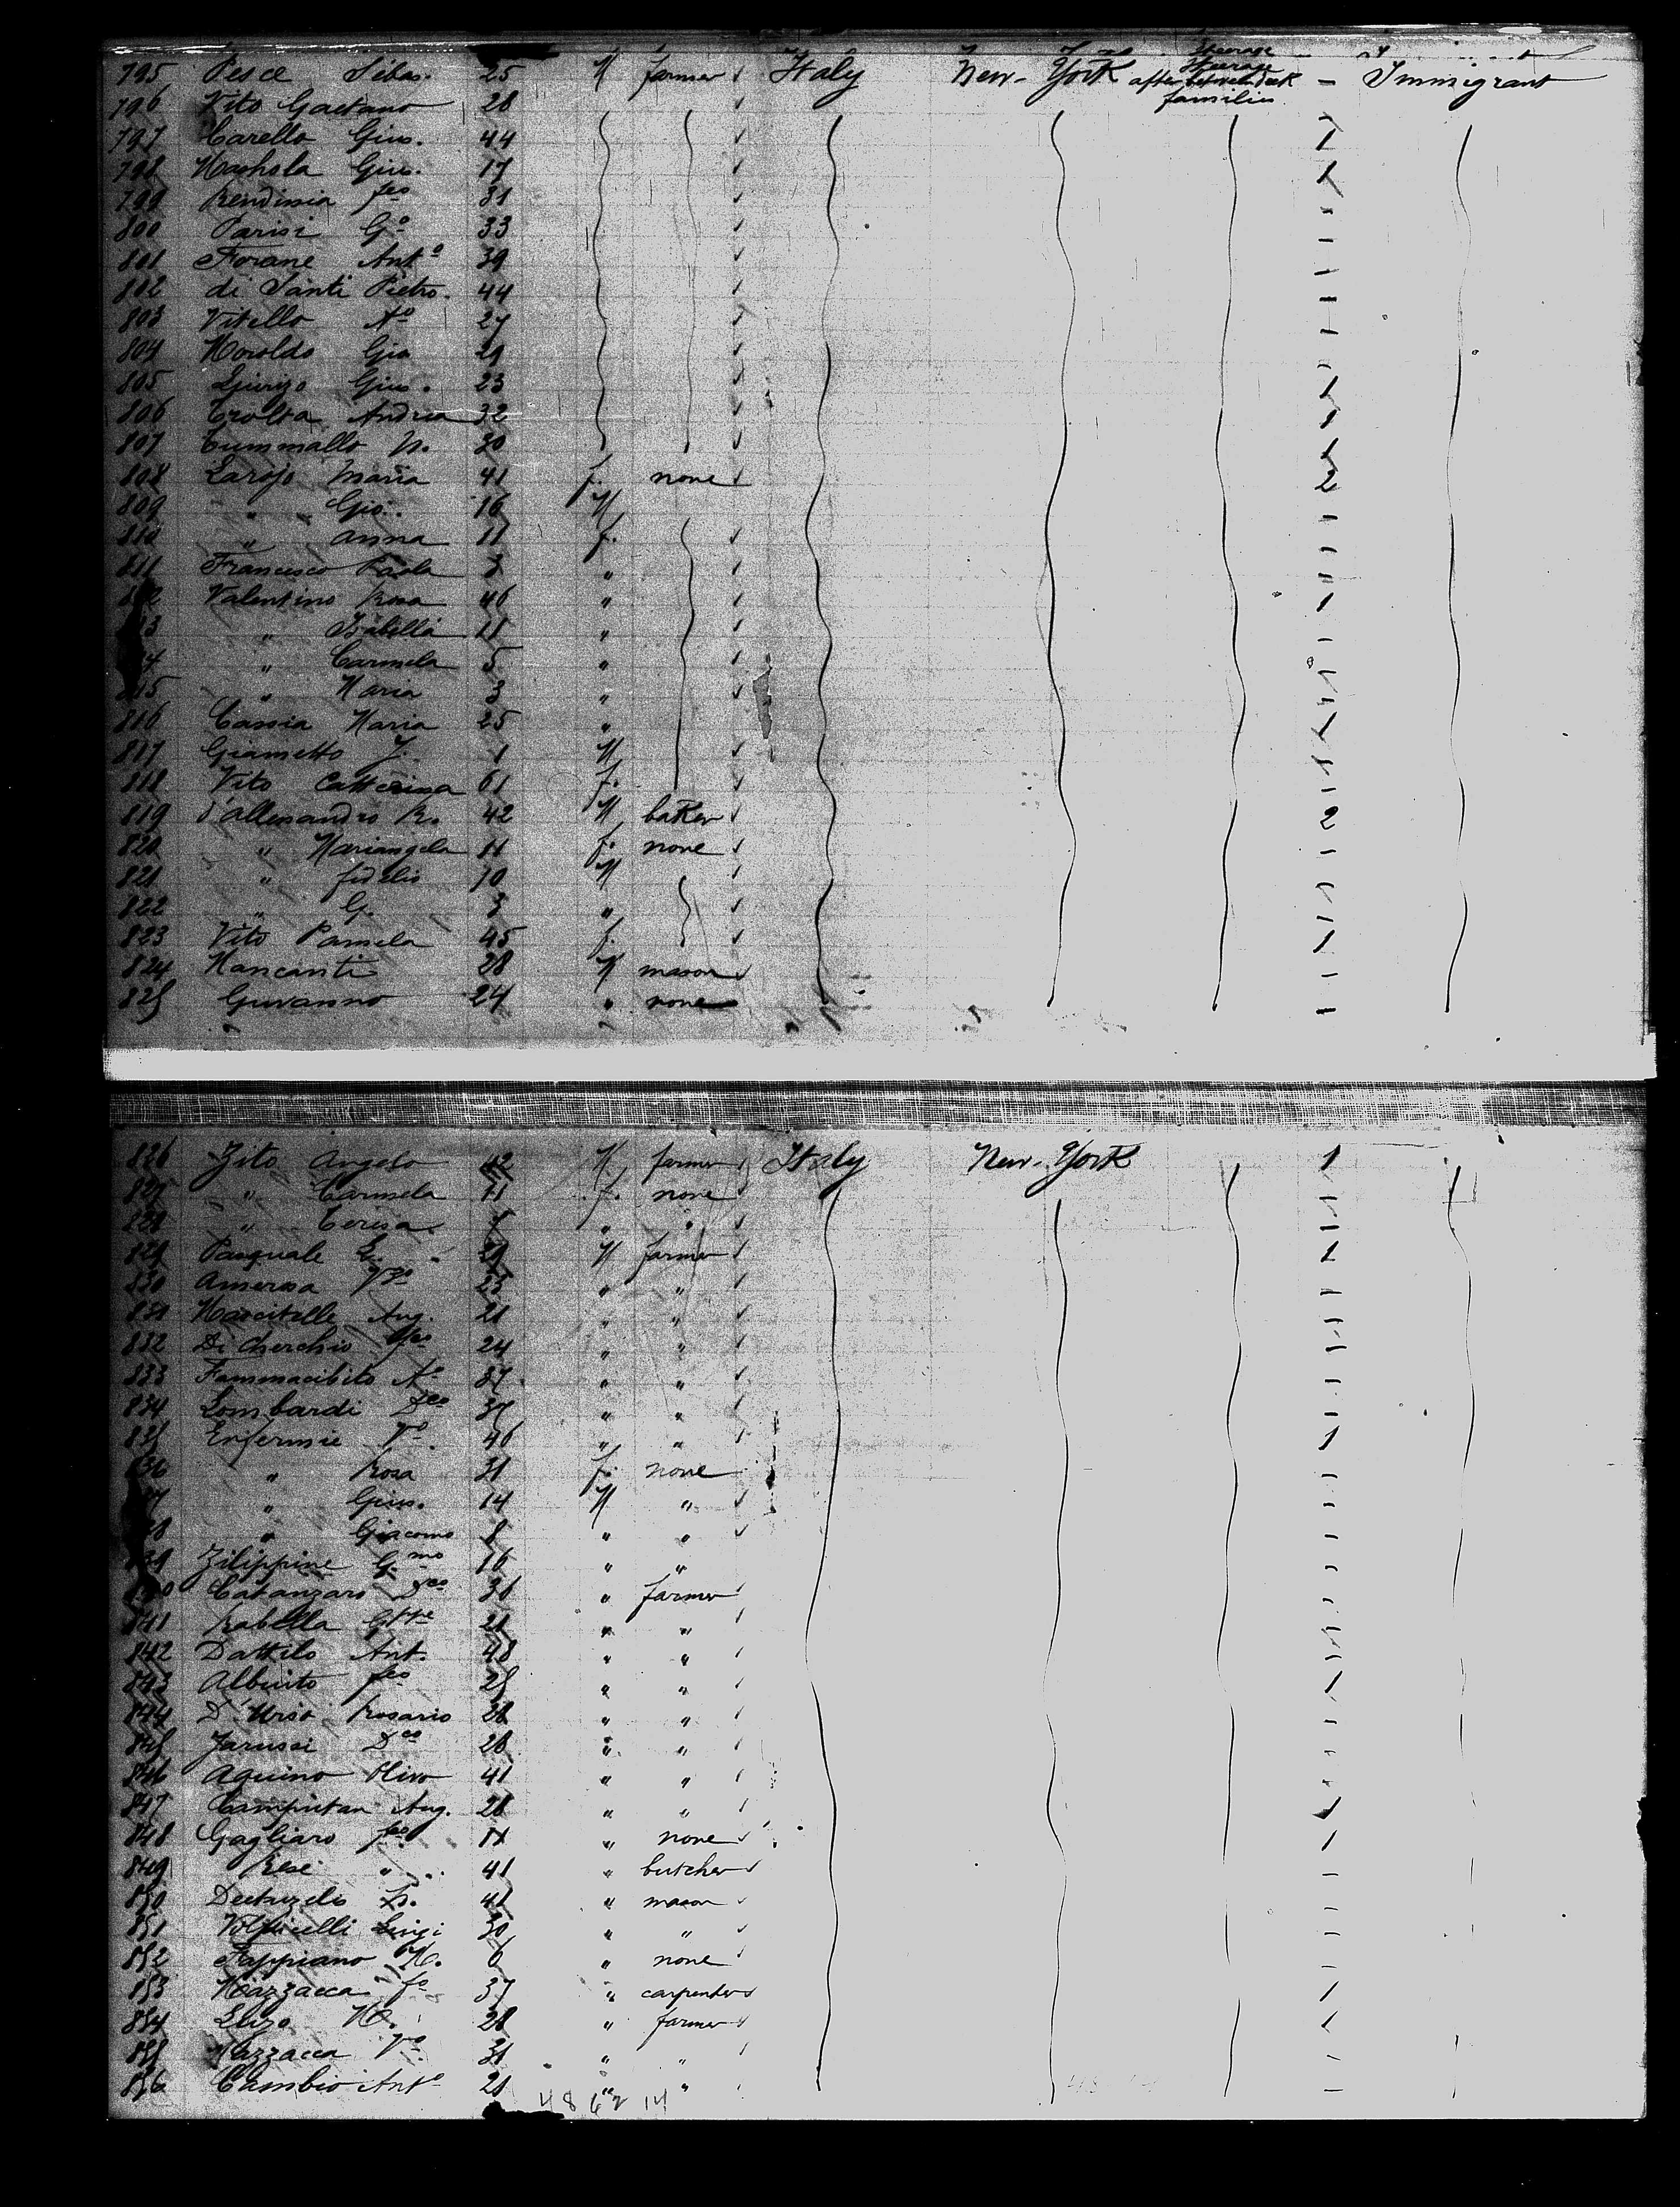 795 Pesce Sebas. 25 M farmer Italy New-York Steerage Steerage after between deck families - Immigrant
796 Vito Gaetano 28
797 Carello Gius. 44
798 Gius. 17
799 Rendinia fco 31
800 Parisi Go 33
801 Forane Anto 39
802 di Santi Pietro. 44
803 Vitello No 27
804 Moroldo Gia 29
805 Gius. 23
806 Crolta Andrea 32
807 Cummallo 30
808 Maria 41 f. none 2
809 " Gio. 16 M
810 " Anna 11 f.
811 Francesco Paola 3 "
Valentino Rosa 46 "
" Isabella 11 "
" Carmela 5 "
815 " Maria 3 "
816 Cassia Maria 25 "
817 Giametto 1 M
818 Vito Catterina 61 f.
819 d'Allesandro R. 42 M baker 2
820 " Mariangela 11 f. none
821 " fidelio 10 M
822 " G. 3 "
823 Vito Pamela 45 f.
824 Mancanti 28 M mason
825 Guvanno 24 " none
826 Zito Angelo 42 M farmer Italy New-York 1
827 " Carmela 11 f. none
828 " Teresa " "
829 Pasquale 29 M farmer
830 Amerosa 23 " "
831 Marcitelli Aug. 21 " "
832 Di Cherchio 24 " "
833 Fammacibito No 37 " "
834 Lombardi Dco 37 " "
835 Enfermie Vo. 46 " "
836 " Rosa 31 f. none
" Gius. 14 M "
" Giacomo 8 " "
839 Zilippine Gmo 16 " "
Catanzaro Dco 36 " farmer
841 Rabella 21 " "
842 Dattilo Ant. 48 " "
843 Albinto fco 25 " "
844 D'Urso Rosario 28 " "
845 Jarussi Dco 28 " "
846 Aquino Olivo 41 " "
847 Aug. 28 " "
848 Gagliaro fco 11 " none
849 Rese " 41 " butcher
850 41 " mason
851 Volpicelli Luigi 30 " "
852 Fappiano M. 6 " none
853 Mazzacca fo 37 " carpenter
854 28 " farmer
855 Mazzacca Vo. 31 " "
856 Cambio Anto 21 " "
48 62 14